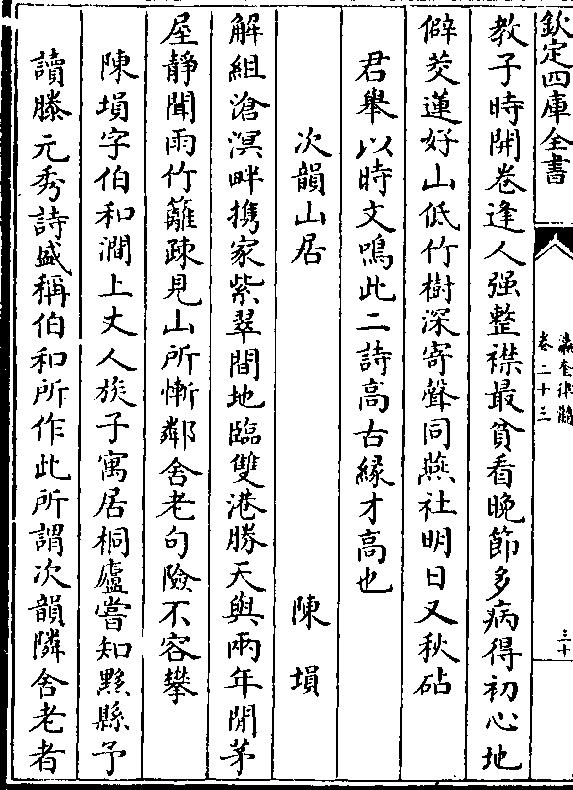 欽定四庫全書
瀛奎律髓
卷二十三
三十
教子時開卷逢人强整襟最貧看晚節多病得初心地
僻茭蓮好山低竹樹深寄聲同燕社明日又秋砧
君舉以時文鳴此二詩髙古縁才髙也
次韻山居
陳埙
解組滄溟畔携家紫翠間地臨雙港勝天與兩年閒茅
屋靜聞雨竹籬疎見山所慚鄰舍老句險不容攀
陳埙字伯和澗上丈人族子寓居桐廬嘗知黟縣予
讀滕元秀詩盛稱伯和所作此所謂次韻隣舍老者